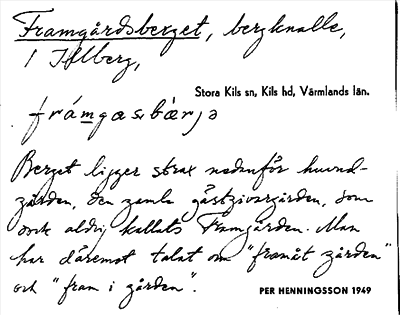 Framgårdsberget, bergknalle,
i Illberg,
Stora Kils sn, Kils hd, Värmlands län.
frámgasbærjə
Berget ligger strax nedanför huvud-
gården, den gamla gästgivargården, som
dock aldrig kallats Framgården. Man
har däremot talat om "framåt gården"
och "fram i gården".
PER HENNINGSSON 1949